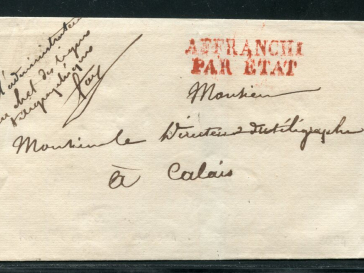 l'administrateur
en chef des lignes
télégraphiques
AFFRANCHI
PAR ÉTAT
Monsieur
Monsieur le Directeur du télégraphe
à Calais